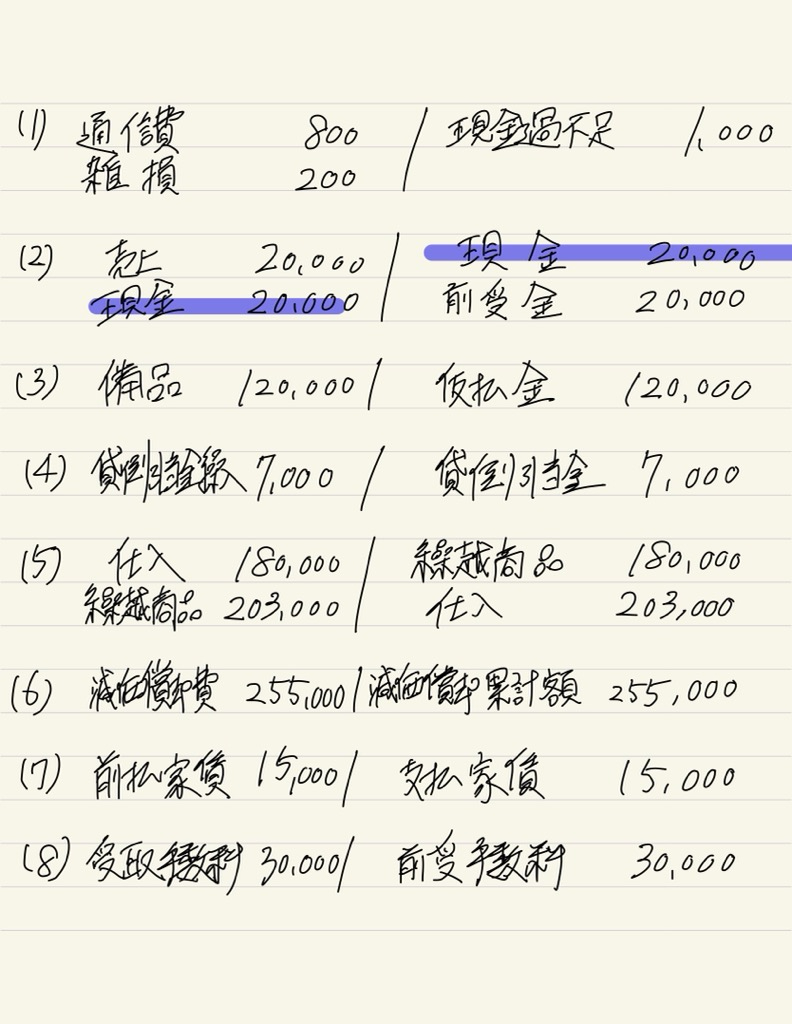 (1) 通信費 800 / 現金過不足 1,000
雑損 200
(2) 売上 20,000 / 現金 20,000
現金 20,000 前受金 20,000
(3) 備品 120,000 / 仮払金 120,000
(4) 貸倒引当金繰入 7,000 / 貸倒引当金 7,000
(5) 仕入 180,000 / 繰越商品 180,000
繰越商品 203,000 仕入 203,000
(6) 減価償却費 255,000 / 減価償却累計額 255,000
(7) 前払家賃 15,000 / 支払家賃 15,000
(8) 受取手数料 30,000 / 前受手数料 30,000